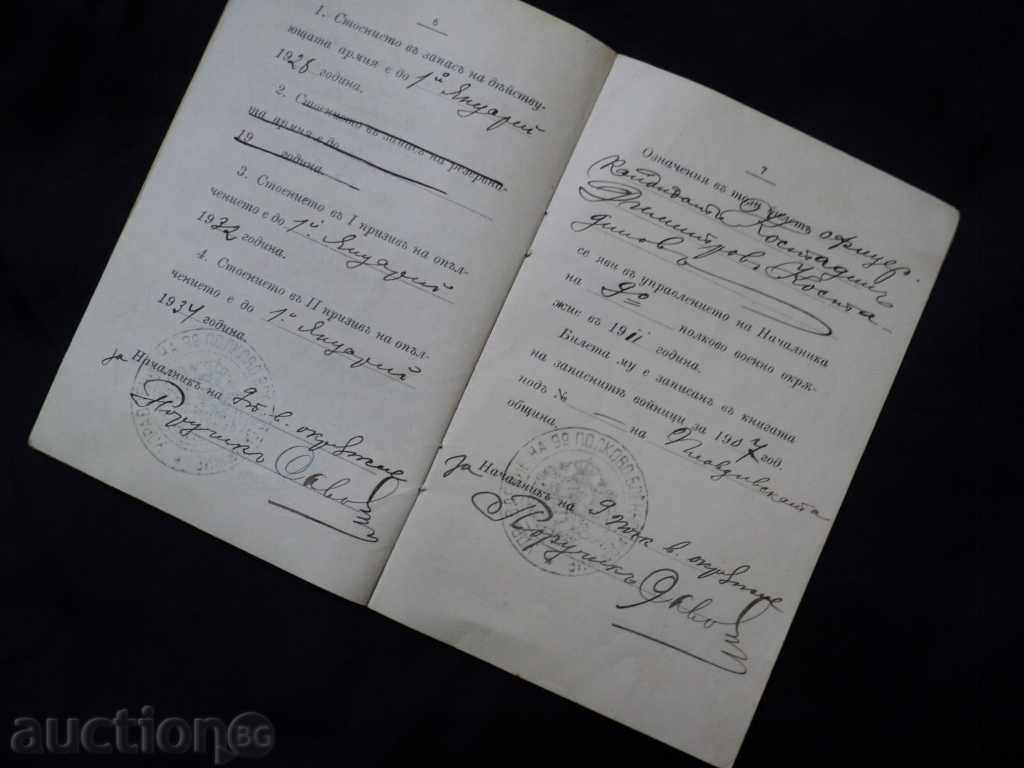 6
1. Стоението въ запасъ на действу-
ющата армия е до 1й Януарий
1928 година.
2. Стоението въ запасъ на резервна-
та армия е до
19 година.
3. Стоението въ I призивъ на опъл-
чението е до 1й Януарий
1932 година.
4. Стоението въ II призивъ на опъл-
чението е до 1й Януарий
1934 година.
за Началникъ на 9то в. окръжие
Поручикъ
7
Означения въ този билетъ офицер.
Кандидатъ Костадинъ
Димитровъ Коста-
диновъ
се яви въ управлението на Началника
на 9о полково военно окръ-
жие въ 1911 година.
Билета му е записанъ въ книгата
на запаснитѣ войници за 1907 год.
подъ № — на Пловдивската
община.
за Началникъ на 9то п. в. окръжие
Поручикъ
НА 9й ПОЛКОВО
НА 9й ПОЛКОВО
auction BG